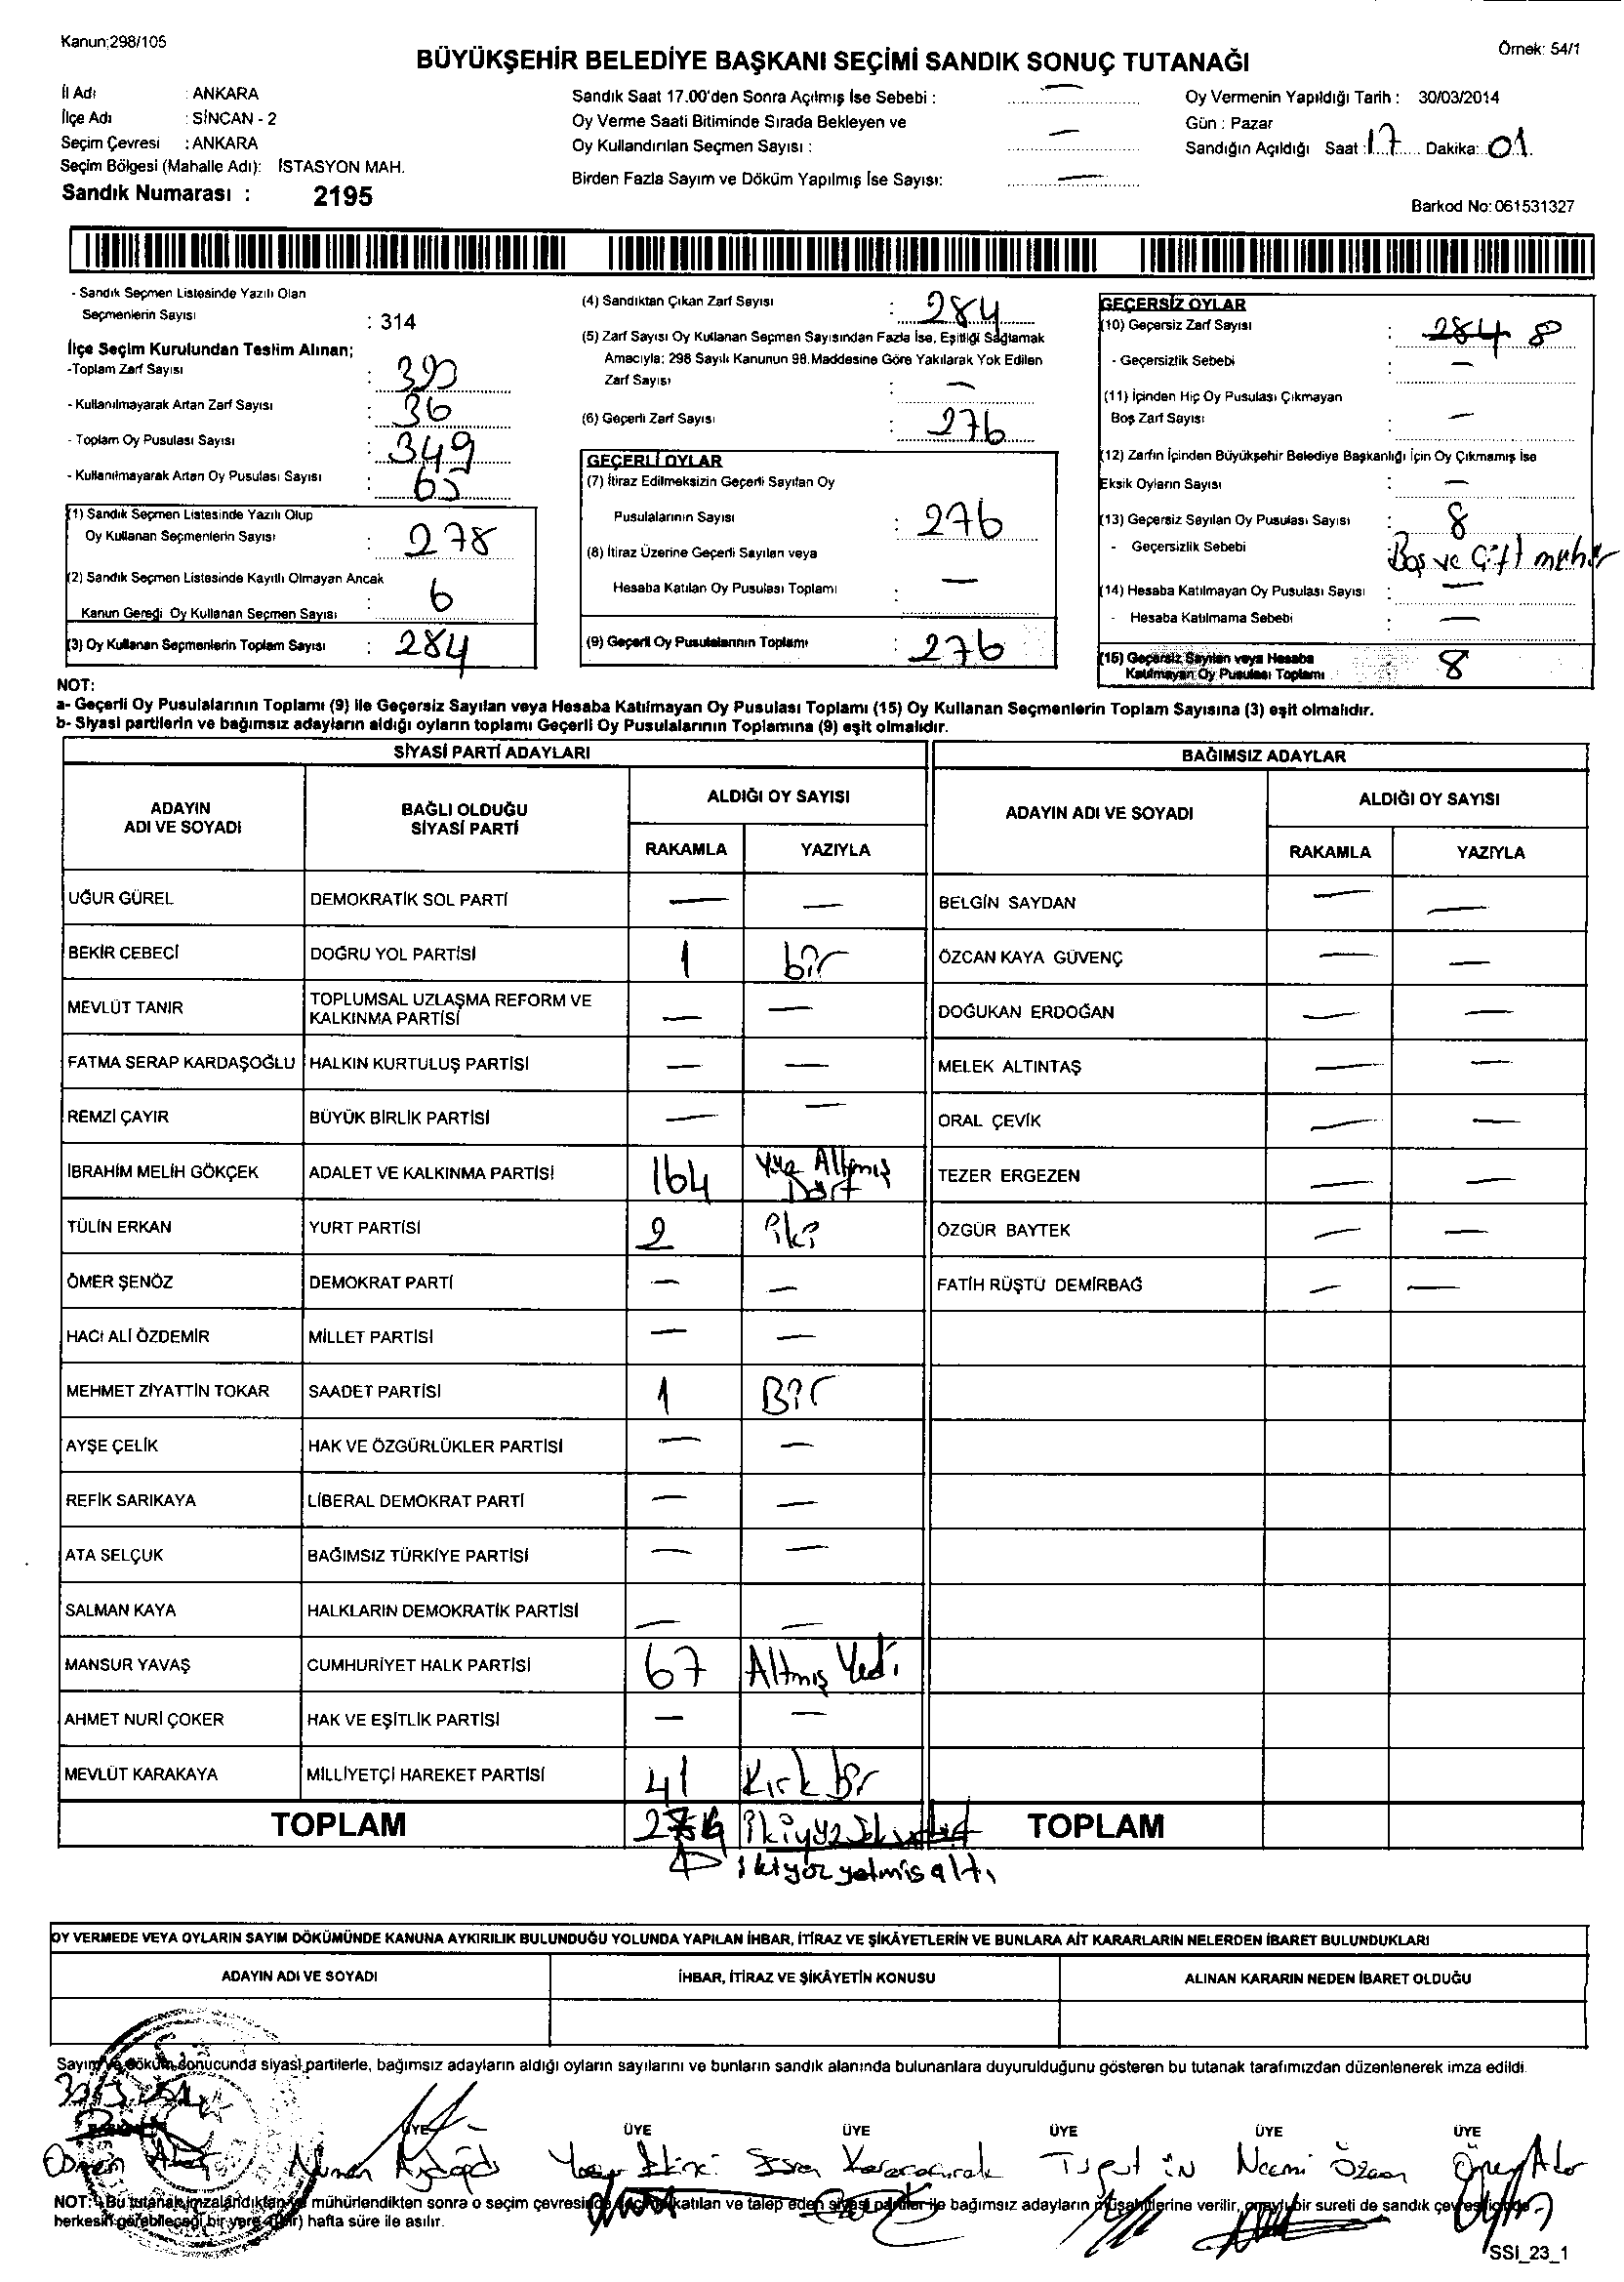 Kanun:298/105
Örnek: 54/1
BÜYÜKŞEHİR BELEDİYE BAŞKANI SEÇİMİ SANDIK SONUÇ TUTANAĞI
İl Adı : ANKARA
İlçe Adı : SİNCAN - 2
Seçim Çevresi : ANKARA
Seçim Bölgesi (Mahalle Adı): İSTASYON MAH.
Sandık Numarası : 2195
Sandık Saat 17.00'den Sonra Açılmış İse Sebebi : —
Oy Verme Saati Bitiminde Sırada Bekleyen ve
Oy Kullandırılan Seçmen Sayısı : —
Birden Fazla Sayım ve Döküm Yapılmış İse Sayısı: —
Oy Vermenin Yapıldığı Tarih : 30/03/2014
Gün : Pazar
Sandığın Açıldığı Saat : 17 Dakika: 01
Barkod No: 061531327
- Sandık Seçmen Listesinde Yazılı Olan
Seçmenlerin Sayısı : 314
İlçe Seçim Kurulundan Teslim Alınan;
-Toplam Zarf Sayısı :
- Kullanılmayarak Artan Zarf Sayısı : 36
- Toplam Oy Pusulası Sayısı : 349
- Kullanılmayarak Artan Oy Pusulası Sayısı : 65
(1) Sandık Seçmen Listesinde Yazılı Olup
Oy Kullanan Seçmenlerin Sayısı : 278
(2) Sandık Seçmen Listesinde Kayıtlı Olmayan Ancak
Kanun Gereği Oy Kullanan Seçmen Sayısı : 6
(3) Oy Kullanan Seçmenlerin Toplam Sayısı : 284
(4) Sandıktan Çıkan Zarf Sayısı : 284
(5) Zarf Sayısı Oy Kullanan Seçmen Sayısından Fazla İse, Eşitliği Sağlamak
Amacıyla; 298 Sayılı Kanunun 98.Maddesine Göre Yakılarak Yok Edilen
Zarf Sayısı : —
(6) Geçerli Zarf Sayısı : 276
GEÇERLİ OYLAR
(7) İtiraz Edilmeksizin Geçerli Sayılan Oy
Pusulalarının Sayısı : 276
(8) İtiraz Üzerine Geçerli Sayılan veya
Hesaba Katılan Oy Pusulası Toplamı : —
(9) Geçerli Oy Pusulalarının Toplamı : 276
GEÇERSİZ OYLAR
(10) Geçersiz Zarf Sayısı : 284 8
- Geçersizlik Sebebi : —
(11) İçinden Hiç Oy Pusulası Çıkmayan
Boş Zarf Sayısı : —
(12) Zarfın İçinden Büyükşehir Belediye Başkanlığı İçin Oy Çıkmamış İse
Eksik Oyların Sayısı : —
(13) Geçersiz Sayılan Oy Pusulası Sayısı : 8
- Geçersizlik Sebebi : Boş ve Çift mühür
(14) Hesaba Katılmayan Oy Pusulası Sayısı : —
- Hesaba Katılmama Sebebi : —
(15) Geçersiz Sayılan veya Hesaba
Katılmayan Oy Pusulası Toplamı : 8
NOT:
a- Geçerli Oy Pusulalarının Toplamı (9) ile Geçersiz Sayılan veya Hesaba Katılmayan Oy Pusulası Toplamı (15) Oy Kullanan Seçmenlerin Toplam Sayısına (3) eşit olmalıdır.
b- Siyasi partilerin ve bağımsız adayların aldığı oyların toplamı Geçerli Oy Pusulalarının Toplamına (9) eşit olmalıdır.
SİYASİ PARTİ ADAYLARI
BAĞIMSIZ ADAYLAR
ADAYIN ADI VE SOYADI
BAĞLI OLDUĞU SİYASİ PARTİ
ALDIĞI OY SAYISI
RAKAMLA YAZIYLA
ADAYIN ADI VE SOYADI
ALDIĞI OY SAYISI
RAKAMLA YAZIYLA
UĞUR GÜREL DEMOKRATİK SOL PARTİ — — BELGİN SAYDAN — —
BEKİR CEBECİ DOĞRU YOL PARTİSİ 1 bir ÖZCAN KAYA GÜVENÇ — —
MEVLÜT TANIR TOPLUMSAL UZLAŞMA REFORM VE KALKINMA PARTİSİ — — DOĞUKAN ERDOĞAN — —
FATMA SERAP KARDAŞOĞLU HALKIN KURTULUŞ PARTİSİ — — MELEK ALTINTAŞ — —
REMZİ ÇAYIR BÜYÜK BİRLİK PARTİSİ — — ORAL ÇEVİK — —
İBRAHİM MELİH GÖKÇEK ADALET VE KALKINMA PARTİSİ 164 Yüz Altmış Dört TEZER ERGEZEN — —
TÜLİN ERKAN YURT PARTİSİ 2 iki ÖZGÜR BAYTEK — —
ÖMER ŞENÖZ DEMOKRAT PARTİ — — FATİH RÜŞTÜ DEMİRBAĞ — —
HACI ALİ ÖZDEMİR MİLLET PARTİSİ — —
MEHMET ZİYATTİN TOKAR SAADET PARTİSİ 1 Bir
AYŞE ÇELİK HAK VE ÖZGÜRLÜKLER PARTİSİ — —
REFİK SARIKAYA LİBERAL DEMOKRAT PARTİ — —
ATA SELÇUK BAĞIMSIZ TÜRKİYE PARTİSİ — —
SALMAN KAYA HALKLARIN DEMOKRATİK PARTİSİ — —
MANSUR YAVAŞ CUMHURİYET HALK PARTİSİ 67 Altmış Yedi
AHMET NURİ ÇOKER HAK VE EŞİTLİK PARTİSİ — —
MEVLÜT KARAKAYA MİLLİYETÇİ HAREKET PARTİSİ 41 Kırk bir
TOPLAM ikiyüz TOPLAM
ikiyüz yetmiş altı
OY VERMEDE VEYA OYLARIN SAYIM DÖKÜMÜNDE KANUNA AYKIRILIK BULUNDUĞU YOLUNDA YAPILAN İHBAR, İTİRAZ VE ŞİKÂYETLERİN VE BUNLARA AİT KARARLARIN NELERDEN İBARET BULUNDUKLARI
ADAYIN ADI VE SOYADI İHBAR, İTİRAZ VE ŞİKÂYETİN KONUSU ALINAN KARARIN NEDEN İBARET OLDUĞU
Sayım ve döküm sonucunda siyasi partilerle, bağımsız adayların aldığı oyların sayılarını ve bunların sandık alanında bulunanlara duyurulduğunu gösteren bu tutanak tarafımızdan düzenlenerek imza edildi.
ÜYE ÜYE ÜYE ÜYE ÜYE ÜYE
Turgut Necmi Özcan
NOT: Bu tutanak imzalandıktan ve mühürlendikten sonra o seçim çevresinde seçime katılan ve talep eden siyasi partiler ile bağımsız adayların müşahitlerine verilir, onaylı bir sureti de sandık çevresi içinde
herkesin görebileceği bir yere (bir) hafta süre ile asılır.
SSI_23_1